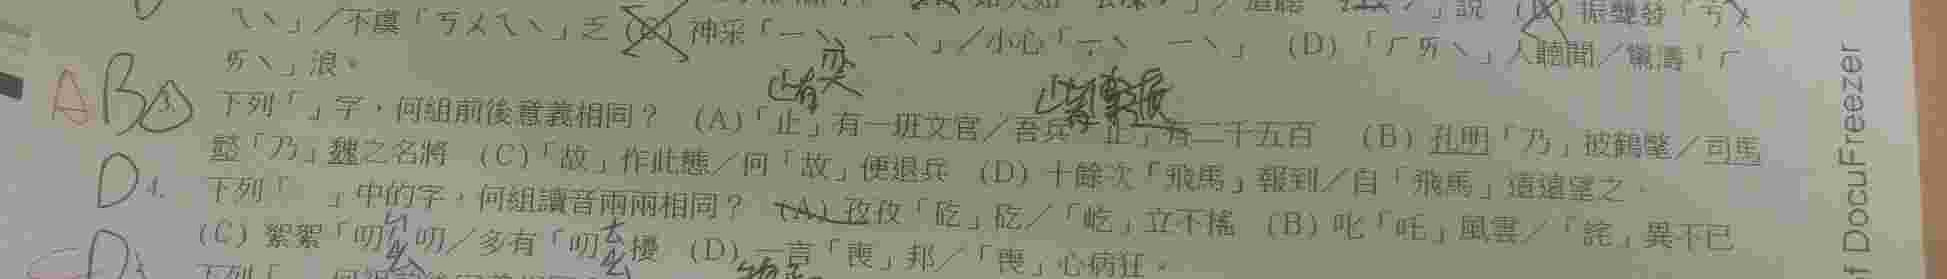 ㄟˋ」／不虞「ㄎㄨㄟˋ」乏 (C) 神采「ㄧˋ ㄧˋ」／小心「ㄧˋ ㄧˋ」 (D)「ㄏㄞˋ」人聽聞／驚濤「ㄏ
ㄞˋ」浪。
皆有 哭
A B 3. 下列「」字，何組前後意義相同？ (A)「止」有一班文官／吾兵「止」有二千五百 (B) 孔明「乃」披鶴氅／司馬
懿「乃」魏之名將 (C)「故」作此態／何「故」便退兵 (D) 十餘次「飛馬」報到／自「飛馬」遠遠望之。
D 4. 下列「 」中的字，何組讀音兩兩相同？ (A) 孜孜「矻」矻／「屹」立不搖 (B) 叱「吒」風雲／「詫」異不已
(C) 絮絮「叨」叨／多有「叨」擾 (D) 一言「喪」邦／「喪」心病狂。
f DocuFreezer